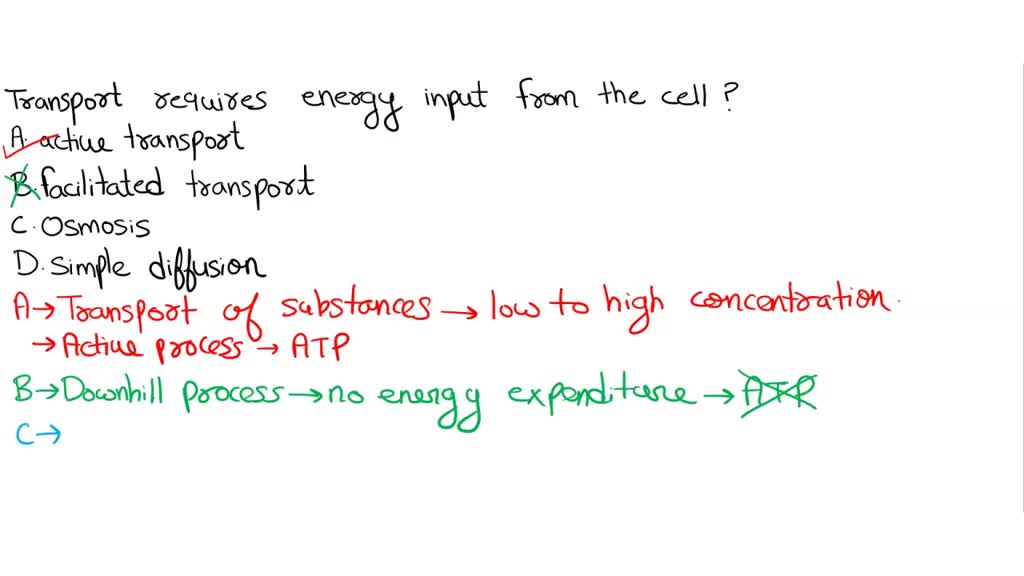 Transport requires energy input from the cell?
A. active transport
B. facilitated transport
C. Osmosis
D. Simple diffusion
A → Transport of substances → low to high concentration.
→ Active process → ATP
B → Downhill process → no energy expenditure → ATP
C →